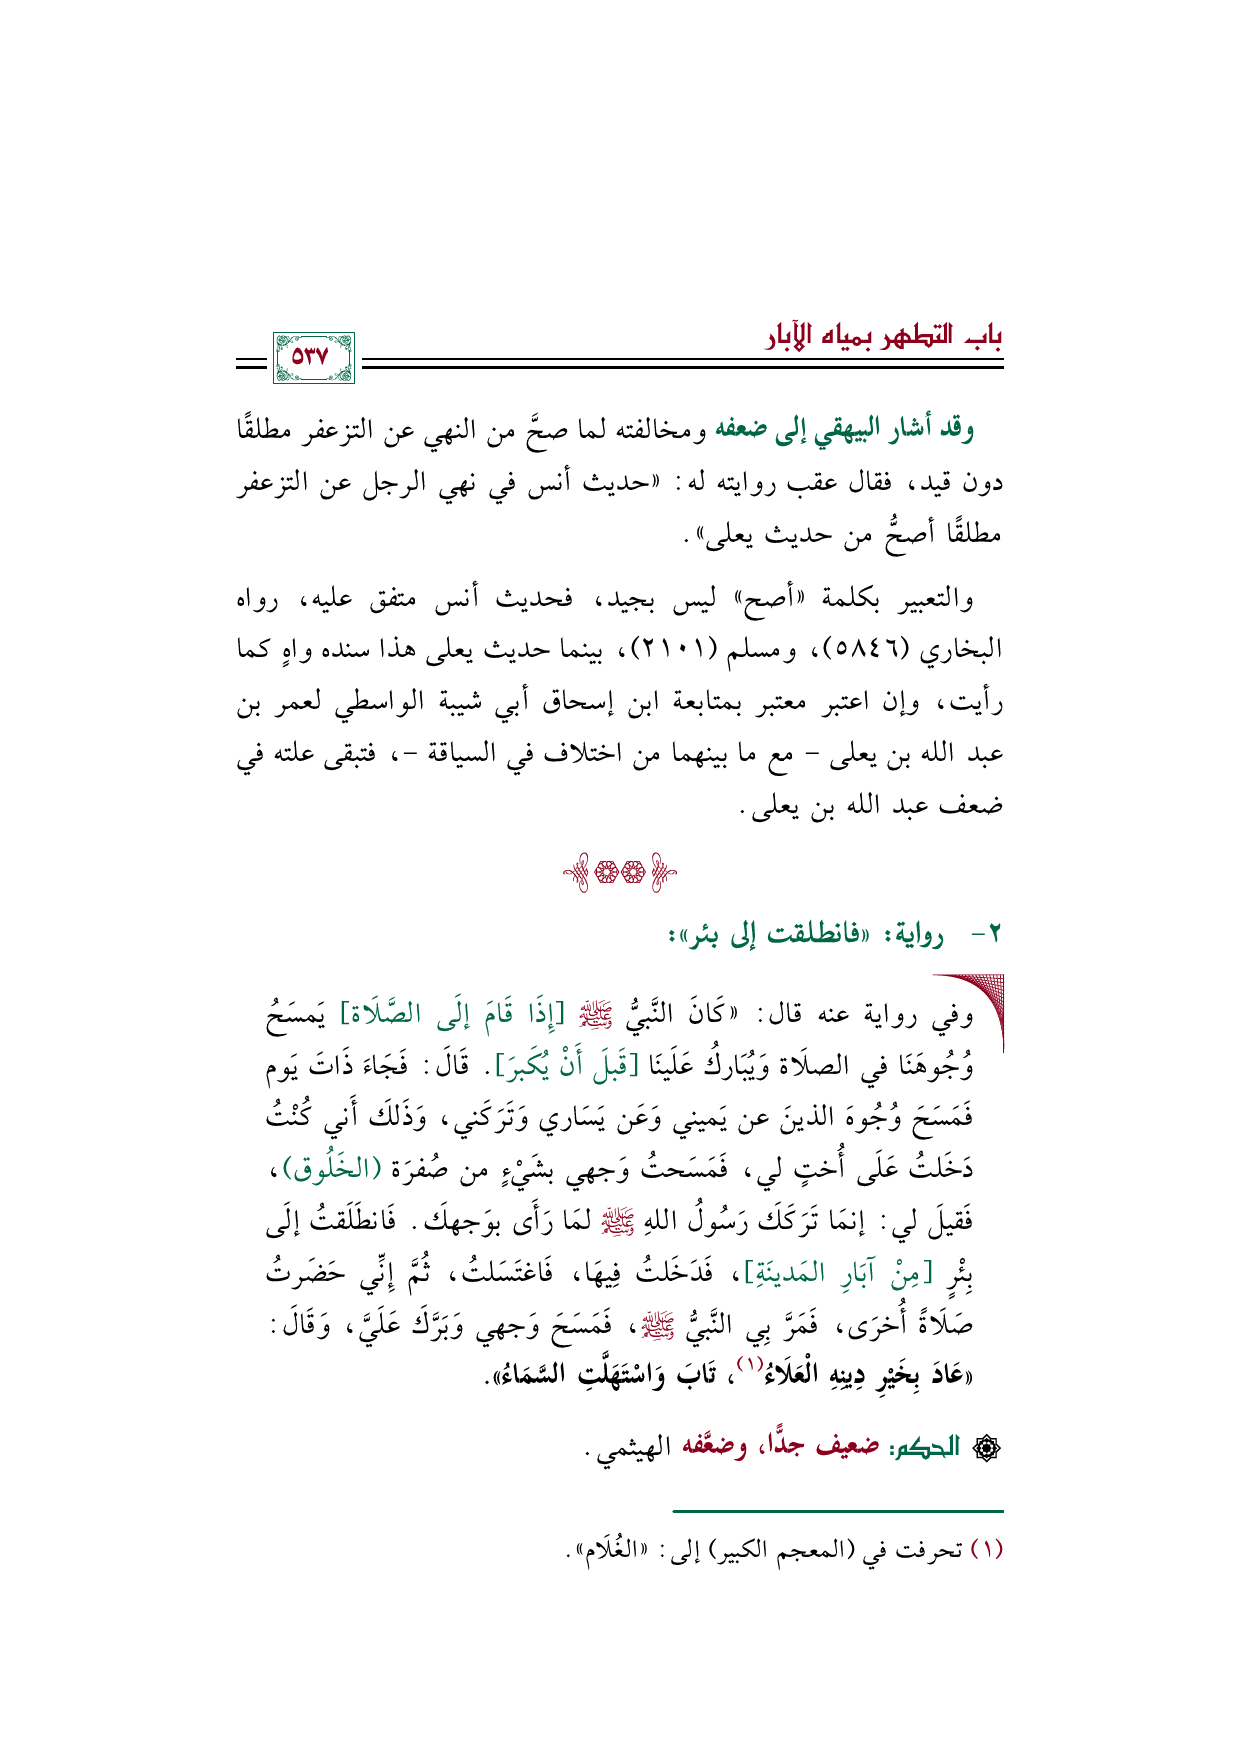 باب التطهر بمياه الآبار
٥٣٧
وقد أشار البيهقي إلى ضعفه ومخالفته لما صحَّ من النهي عن التزعفر مطلقًا
دون قيد، فقال عقب روايته له: «حديث أنس في نهي الرجل عن التزعفر
مطلقًا أصحُّ من حديث يعلى».
والتعبير بكلمة «أصح» ليس بجيد، فحديث أنس متفق عليه، رواه
البخاري (٥٨٤٦)، ومسلم (٢١٠١)، بينما حديث يعلى هذا سنده واهٍ كما
رأيت، وإن اعتبر معتبر بمتابعة ابن إسحاق أبي شيبة الواسطي لعمر بن
عبد الله بن يعلى - مع ما بينهما من اختلاف في السياقة -، فتبقى علته في
ضعف عبد الله بن يعلى.
٢- رواية: «فانطلقت إلى بئر»:
وفي رواية عنه قال: «كَانَ النَّبيُّ ﷺ [إِذَا قَامَ إلَى الصَّلَاة] يَمسَحُ
وُجُوهَنَا في الصلَاة وَيُبَاركُ عَلَينَا [قَبلَ أَنْ يُكَبرَ]. قَالَ: فَجَاءَ ذَاتَ يَوم
فَمَسَحَ وُجُوهَ الذينَ عن يَميني وَعَن يَسَاري وَتَرَكَني، وَذَلكَ أَني كُنْتُ
دَخَلتُ عَلَى أُختٍ لي، فَمَسَحتُ وَجهي بشَيْءٍ من صُفرَة (الخَلُوق)،
فَقيلَ لي: إنمَا تَرَكَك رَسُولُ اللهِ ﷺ لمَا رَأَى بوَجهكَ. فَانطَلَقتُ إلَى
بِئْرٍ [مِنْ آبَارِ المَدينَةِ]، فَدَخَلتُ فِيهَا، فَاغتَسَلتُ، ثُمَّ إِنِّي حَضَرتُ
صَلَاةً أُخرَى، فَمَرَّ بِي النَّبيُّ ﷺ، فَمَسَحَ وَجهي وَبَرَّكَ عَلَيَّ، وَقَالَ:
«عَادَ بِخَيْرِ دِينِهِ الْعَلَاءُ(١)، تَابَ وَاسْتَهَلَّتِ السَّمَاءُ».
الحكم: ضعيف جدًّا، وضعَّفه الهيثمي.
(١) تحرفت في (المعجم الكبير) إلى: «الغُلَام».